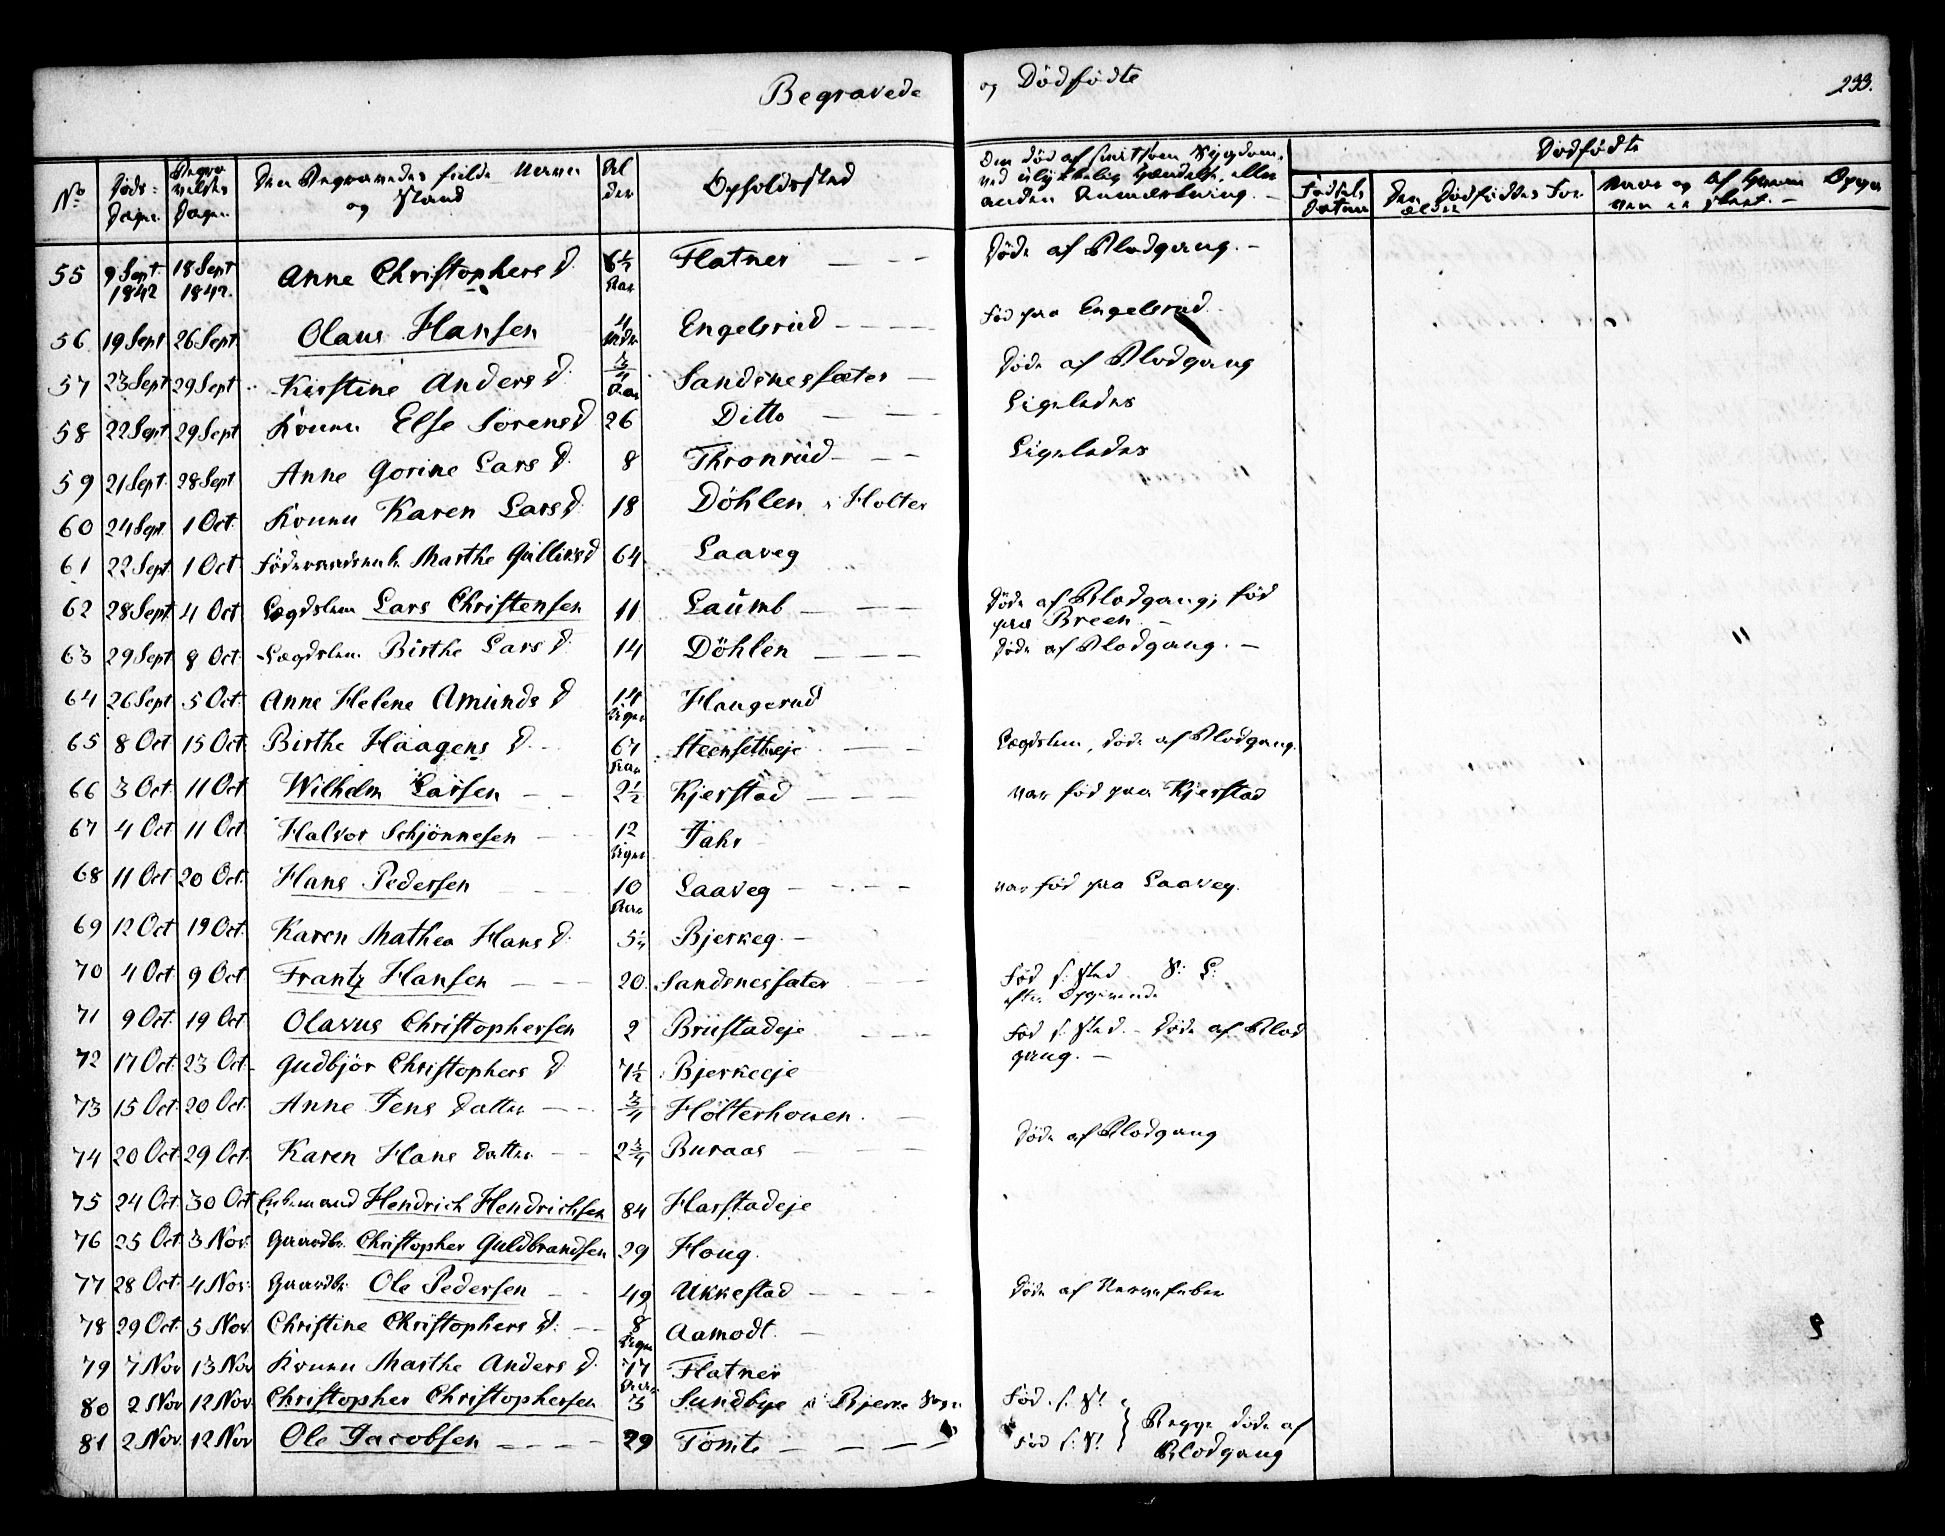 Begravede og Dödfödte 233.
No Döds-Dagen Begravelses Dagen Den Begravedes fulde Navn og Stand Alder Opholdssted Den död af smitsom Sygdom, ved ulykkelig Hændelse, eller anden Anmærkning. – Dödfödte
Födsels Datum Den Dödfödtes Forældre Naar og Af Hvem Opgaven er skeet. –
55 9 Sept 1842 18 Sept 1842. Anne Christophers D. 6½ Aar Flatner — – – Döde af Blodgang. –
56 19 Sept 26 Sept Olaus Hansen 4 Uger Engelsrud – – – – Föd paa Engelsrud.
57 23 Sept 29 Sept Kirstine Anders D. ¾ Aar Sandsnessæter – Döde af Blodgang
58 22 Sept 29 Sept Konen Else Sörens D 26 Ditto – – – Ligeledes
59 21 Sept 28 Sept Anne Gorine Lars D. 8 Thronrud – – – Ligeledes
60 24 Sept. 1 Oct. Konen Karen Lars D. 18 Döhlen i Holter
61 22 Sept 1 Oct. Föderaadsenke Marthe Gulliks D 64 Laaveg
62 28 Sept 4 Oct. Lægdslem Lars Christensen 11 Laumb – – – Döde af Blodgang; föd
paa Breen. –
63 29 Sept 8 Oct. Lægdslem. Birthe Lars D. 14 Döhlen – – – Döde af Blodgang. –
64 26 Sept 5 Oct. Anne Helene Amunds D 14 Uger Haugerud
65 8 Oct 15 Oct. Birthe Haagens D. 67 Aar Steensetheje – – Lægdslem, döde af Blodgang.
66 3 Oct. 11 Oct Wilhelm Larsen – – 2½ Kjerstad – – – var föd paa Kjerstad
67 4 Oct 11 Oct. Halvor Schjönnesen – – 12 Uger Jahr
68 11 Oct 20 Oct. Hans Pedersen – – – 10 Aar Laaveg – – – var föd paa Laaveg.
69 12 Oct 19 Oct. Karen Mathea Hans D. 5¼ Bjerkeg. –
70 4 Oct 9 Oct. Frantz Hansen – – – 20. Sandsnessæter – – Föd s. Sted S: L:
efter Opgivende
71 9 Oct. 19 Oct. Olavus Christophersen 2 Brustadeje – – – Föd s. Sted. – Döde af Blod
gang. –
72 17 Oct. 23 Oct. Gudbjör Christophers D 7½ Bjerkeeje
73 15 Oct. 20 Oct. Anne Jens Datter – – ¾ Holterhouen. –
74 20 Oct 29 Oct. Karen Hans Datter – – 2¾ Buraas – – – Döde af Blodgang
75 24 Oct 30 Oct Enkemand Hendrich Hendrichsen 84 Harstadeje
76 25 Oct. 3 Nov. Gaardbr. Christopher Guldbrandsen 29 Houg.
77 28 Oct. 4 Nov. Gaardbr. Ole Pedersen – – 49 Ukkestad – – – – Döde af Nervefeber
78 29 Oct. 5 Nov. Christine Christophers D. – 8 Uger Aamodt. –
79 7 Nov 13 Nov Konen Marthe Anders D. 77 Aar Flatner
80 2 Nov 12 Nov Christopher Christophersen 3 Sundbye i Bjerke Sogn Föd. s. St.
81 2 Nov. 12 Nov Ole Jacobsen – – – – 29 Tömte – – – – Föd s: St } Begge döde af
Blodgang